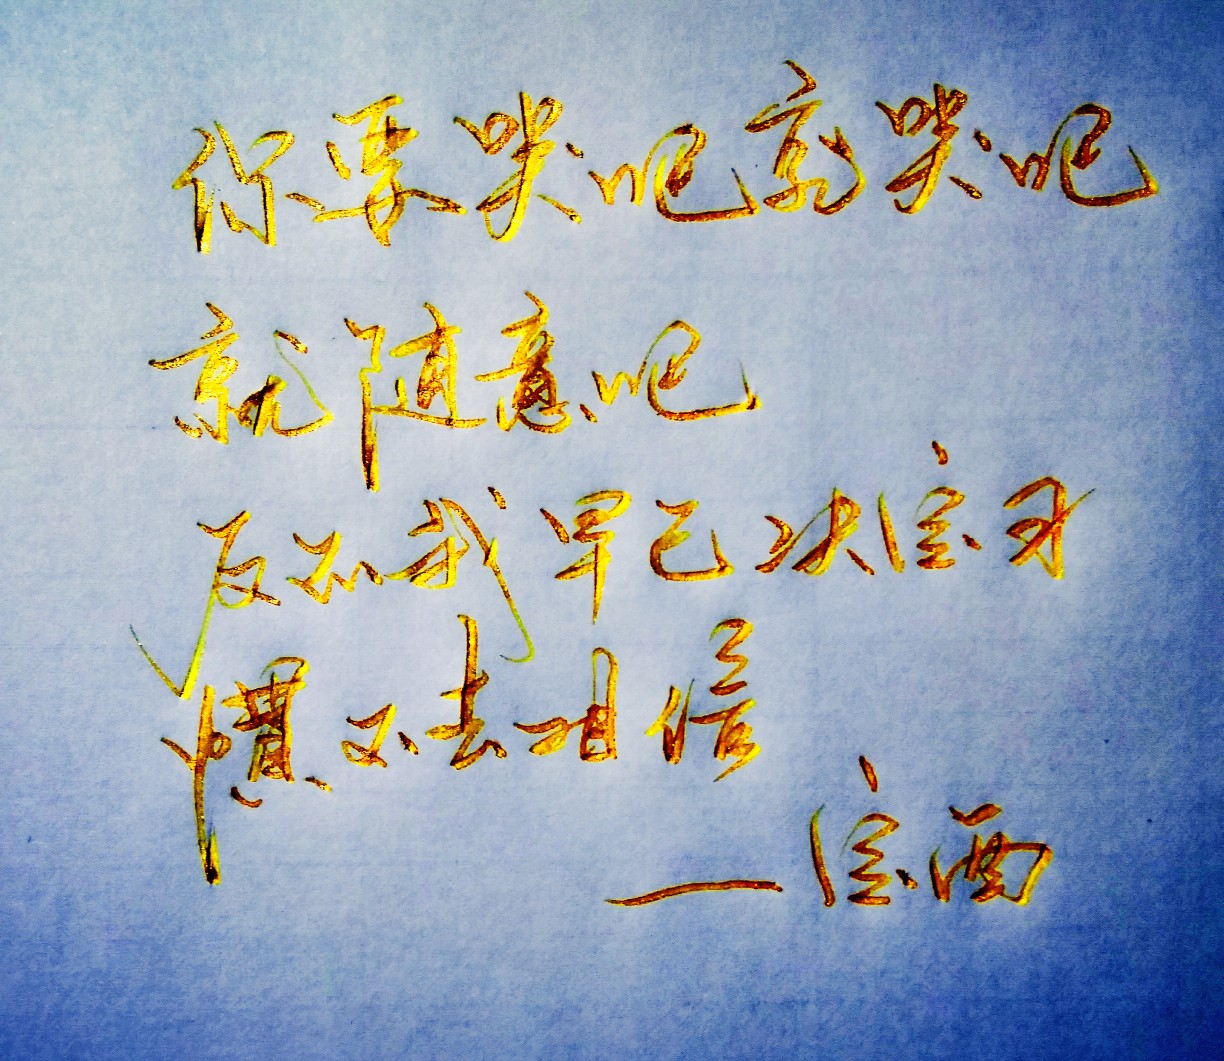 你要哭吧就哭吧
就随意吧
反正我早已决定习
惯不去相信
—定西